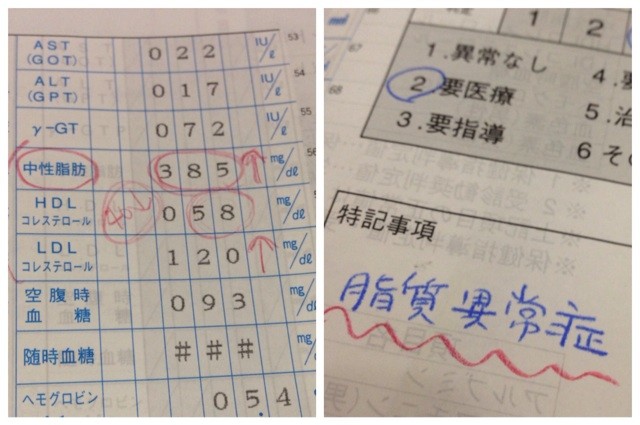 AST
(GOT) 022 IU/ℓ 53
ALT
(GPT) 017 IU/ℓ 54
γ-GT 072 IU/ℓ 55
中性脂肪 385 ↑ mg/dℓ 56
HDL
コレステロール 058 mg/dℓ
LDL
コレステロール 120 ↑ mg/dℓ
空腹時
血糖 093 mg/dℓ
随時血糖 ### mg/dℓ
ヘモグロビン 054
66
67
68
1 2
1.異常なし 4.要
2.要医療 5.治
3.要指導 6 そ
特記事項
脂質異常症